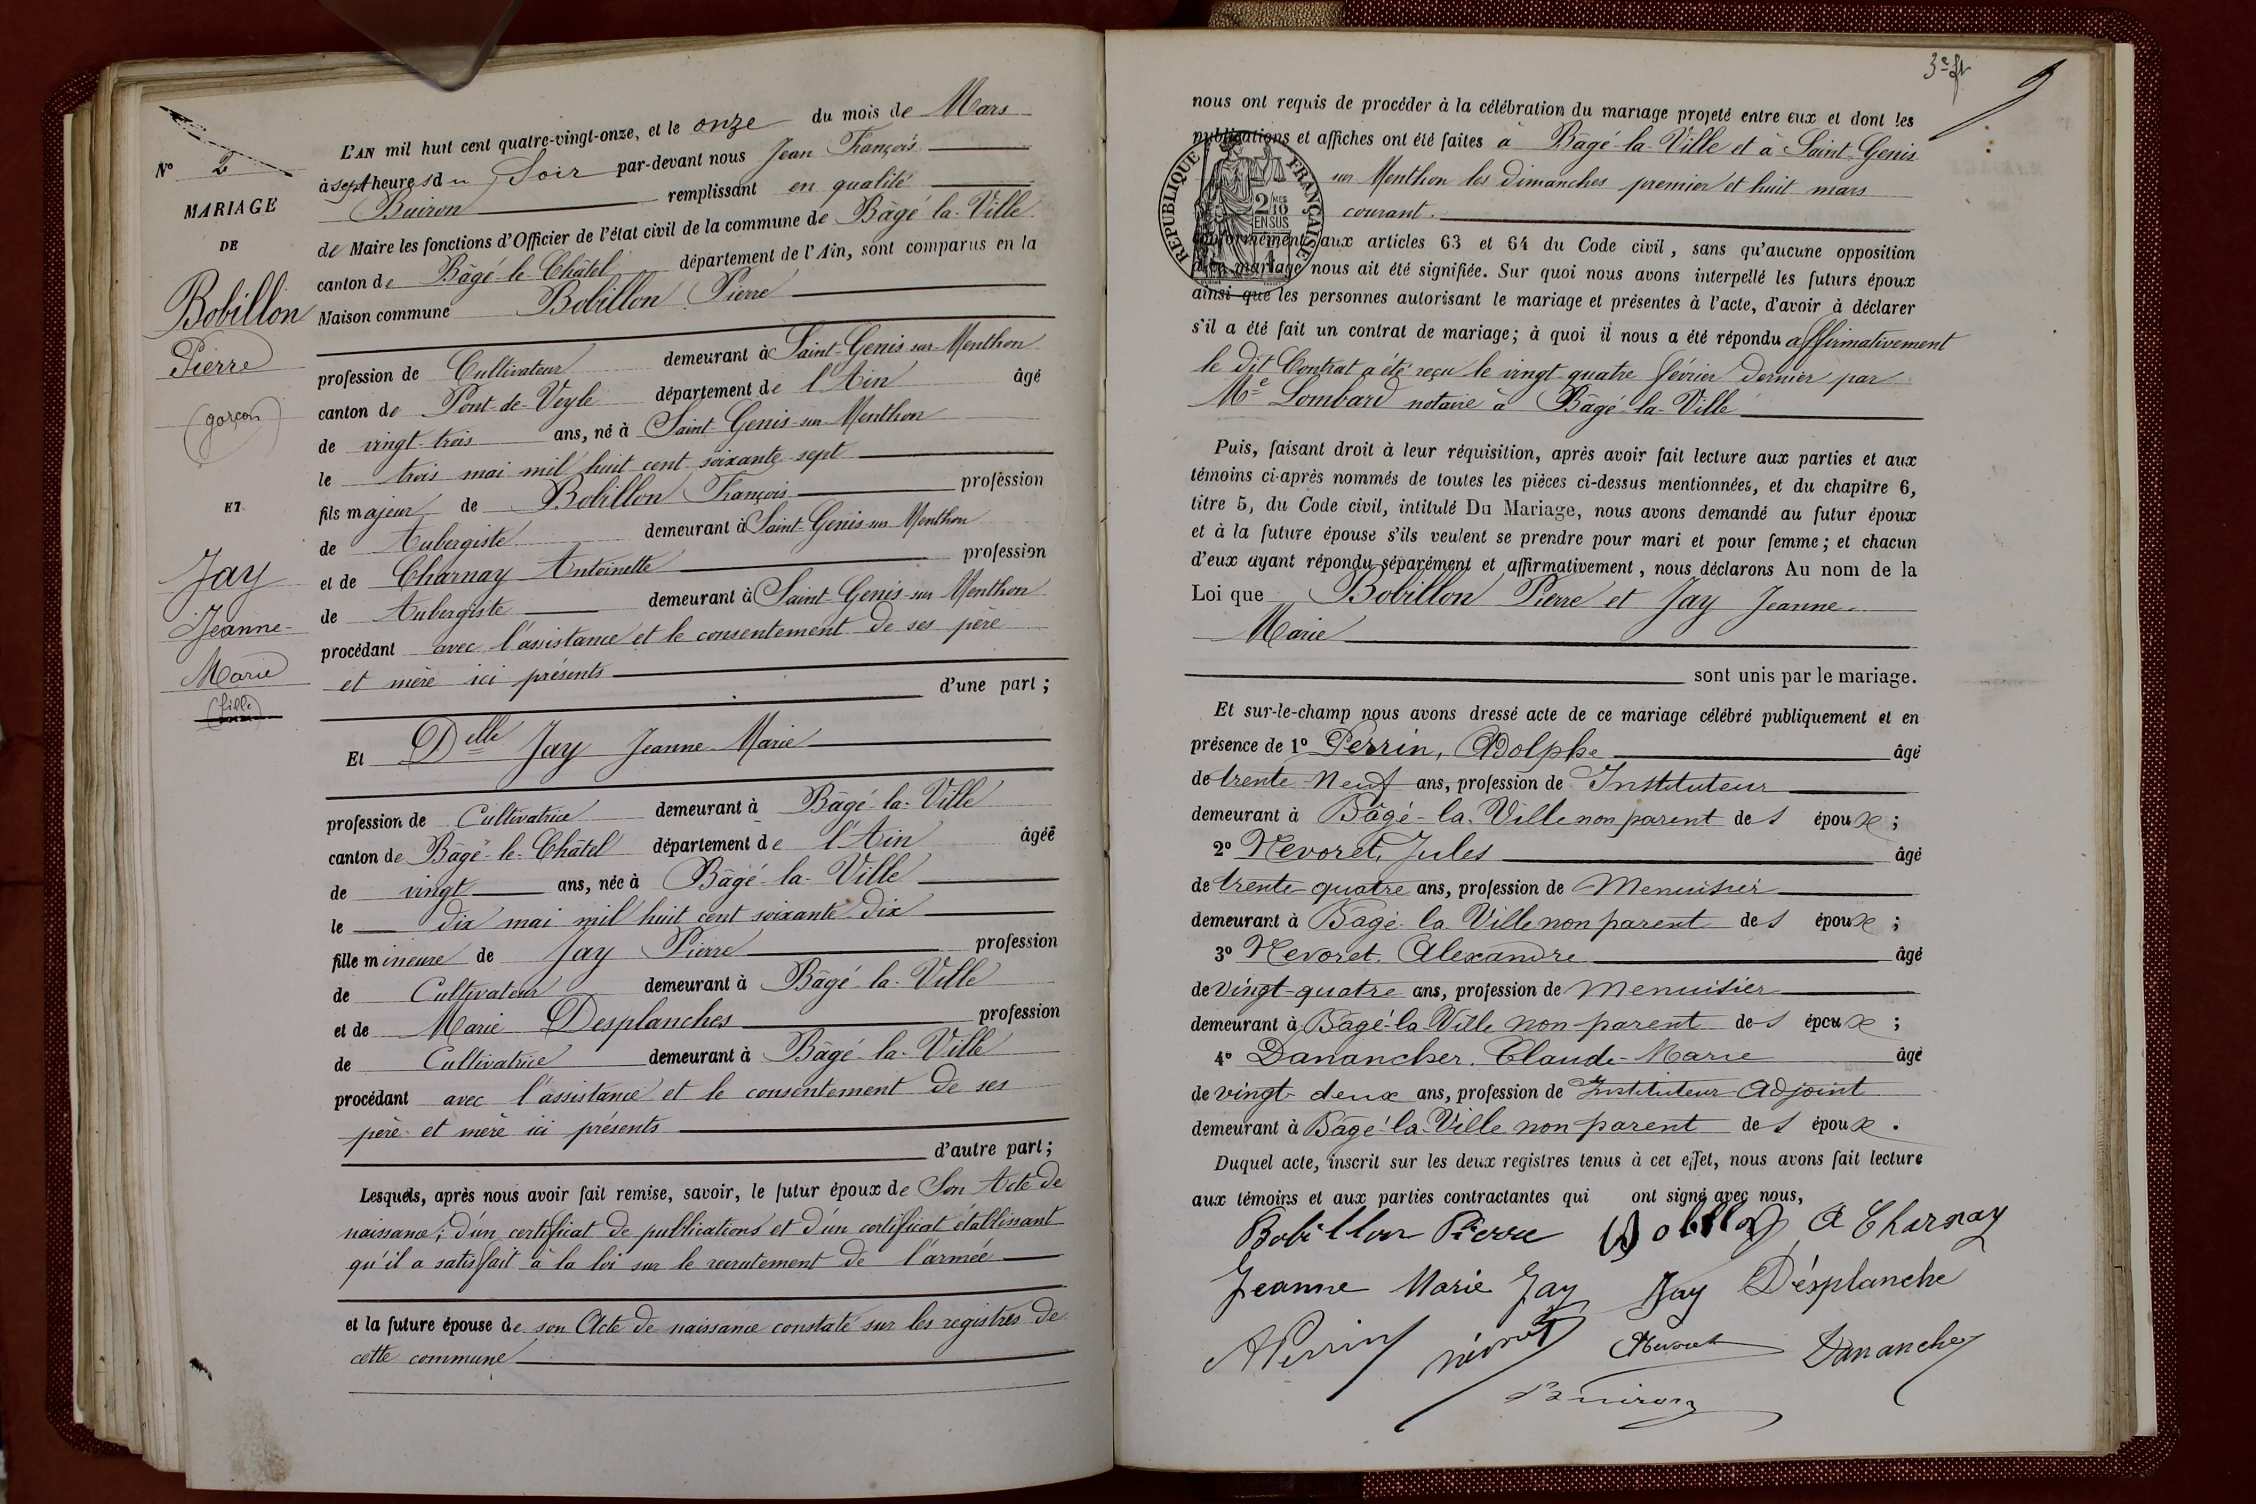 N° 2
MARIAGE
DE
Bobillon
Pierre
(garçon)
ET
Jay
Jeanne-
Marie
(fille)
L'AN mil huit cent quatre-vingt-onze, et le onze du mois de Mars
à sept heures du Soir par-devant nous Jean François
Buiron remplissant en qualité
de Maire les fonctions d'Officier de l'état civil de la commune de Bâgé-la-Ville
canton de Bâgé-le-Châtel département de l'Ain, sont comparus en la
Maison commune Bobillon Pierre
profession de Cultivateur demeurant à Saint-Genis-sur-Menthon
canton de Pont-de-Veyle département de l'Ain âgé
de vingt-trois ans, né à Saint-Genis-sur-Menthon
le trois mai mil huit cent soixante-sept
fils majeur de Bobillon François profession
de Aubergiste demeurant à Saint-Genis-sur-Menthon
et de Charnay Antoinette profession
de Aubergiste demeurant à Saint-Genis-sur-Menthon
procédant avec l'assistance et le consentement de ses père
et mère ici présents
d'une part;
Et Delle Jay Jeanne-Marie
profession de Cultivatrice demeurant à Bâgé-la-Ville
canton de Bâgé-le-Châtel département de l'Ain âgée
de vingt ans, née à Bâgé-la-Ville
le dix mai mil huit cent soixante-dix
fille mineure de Jay Pierre profession
de Cultivateur demeurant à Bâgé-la-Ville
et de Marie Desplanches profession
de Cultivatrice demeurant à Bâgé-la-Ville
procédant avec l'assistance et le consentement de ses
père et mère ici présents
d'autre part;
Lesquels, après nous avoir fait remise, savoir, le futur époux de Son Acte de
naissance; d'un certificat de publications et d'un certificat établissant
qu'il a satisfait à la loi sur le recrutement de l'armée
et la future épouse de son Acte de naissance constaté sur les registres de
cette commune
nous ont requis de procéder à la célébration du mariage projeté entre eux et dont les
publications et affiches ont été faites à Bâgé-la-Ville et à Saint-Genis
sur Menthon les dimanches premier et huit mars
courant.
RÉPUBLIQUE FRANÇAISE
conformément aux articles 63 et 64 du Code civil, sans qu'aucune opposition
mariage nous ait été signifiée. Sur quoi nous avons interpellé les futurs époux
ainsi que les personnes autorisant le mariage et présentes à l'acte, d'avoir à déclarer
s'il a été fait un contrat de mariage; à quoi il nous a été répondu affirmativement
le dit Contrat a été reçu le vingt-quatre février dernier par
Me Lombard notaire à Bâgé-la-Ville
Puis, faisant droit à leur réquisition, après avoir fait lecture aux parties et aux
témoins ci-après nommés de toutes les pièces ci-dessus mentionnées, et du chapitre 6,
titre 5, du Code civil, intitulé Du Mariage, nous avons demandé au futur époux
et à la future épouse s'ils veulent se prendre pour mari et pour femme; et chacun
d'eux ayant répondu séparément et affirmativement, nous déclarons Au nom de la
Loi que Bobillon Pierre et Jay Jeanne-
Marie
sont unis par le mariage.
Et sur-le-champ nous avons dressé acte de ce mariage célébré publiquement et en
présence de 1° Perrin, Adolphe âgé
de trente-neuf ans, profession de Instituteur
demeurant à Bâgé-la-Ville non parent des époux;
2° Nevoret, Jules âgé
de trente-quatre ans, profession de Menuisier
demeurant à Bâgé-la-Ville non parent des époux;
3° Nevoret, Alexandre âgé
de vingt-quatre ans, profession de Menuisier
demeurant à Bâgé-la-Ville non parent des époux;
4° Danancher, Claude-Marie âgé
de vingt-deux ans, profession de Instituteur-Adjoint
demeurant à Bâgé-la-Ville non parent des époux.
Duquel acte, inscrit sur les deux registres tenus à cet effet, nous avons fait lecture
aux témoins et aux parties contractantes qui ont signé avec nous,
Bobillon Pierre Bobillon A Charnay
Jeanne Marie Jay Jay Désplanche
A Perrin Nevoret Danancher
Buiron